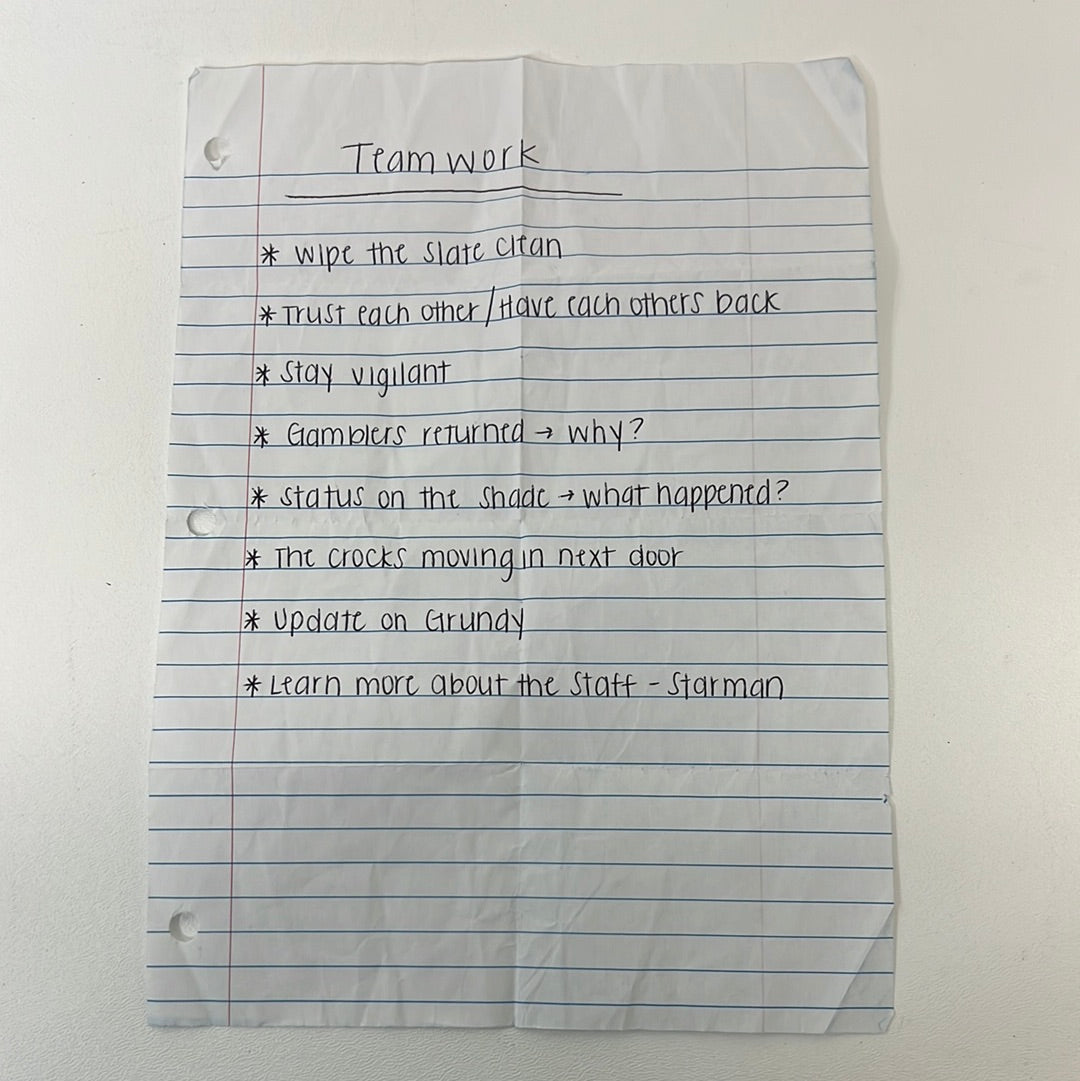 Teamwork
* Wipe the slate clean
* Trust each other/Have each others back
* Stay vigilant
* Gamblers returned → why?
* Status on the Shade → what happened?
* The Crocks moving in next door
* Update on Grundy
* Learn more about the Staff - Starman